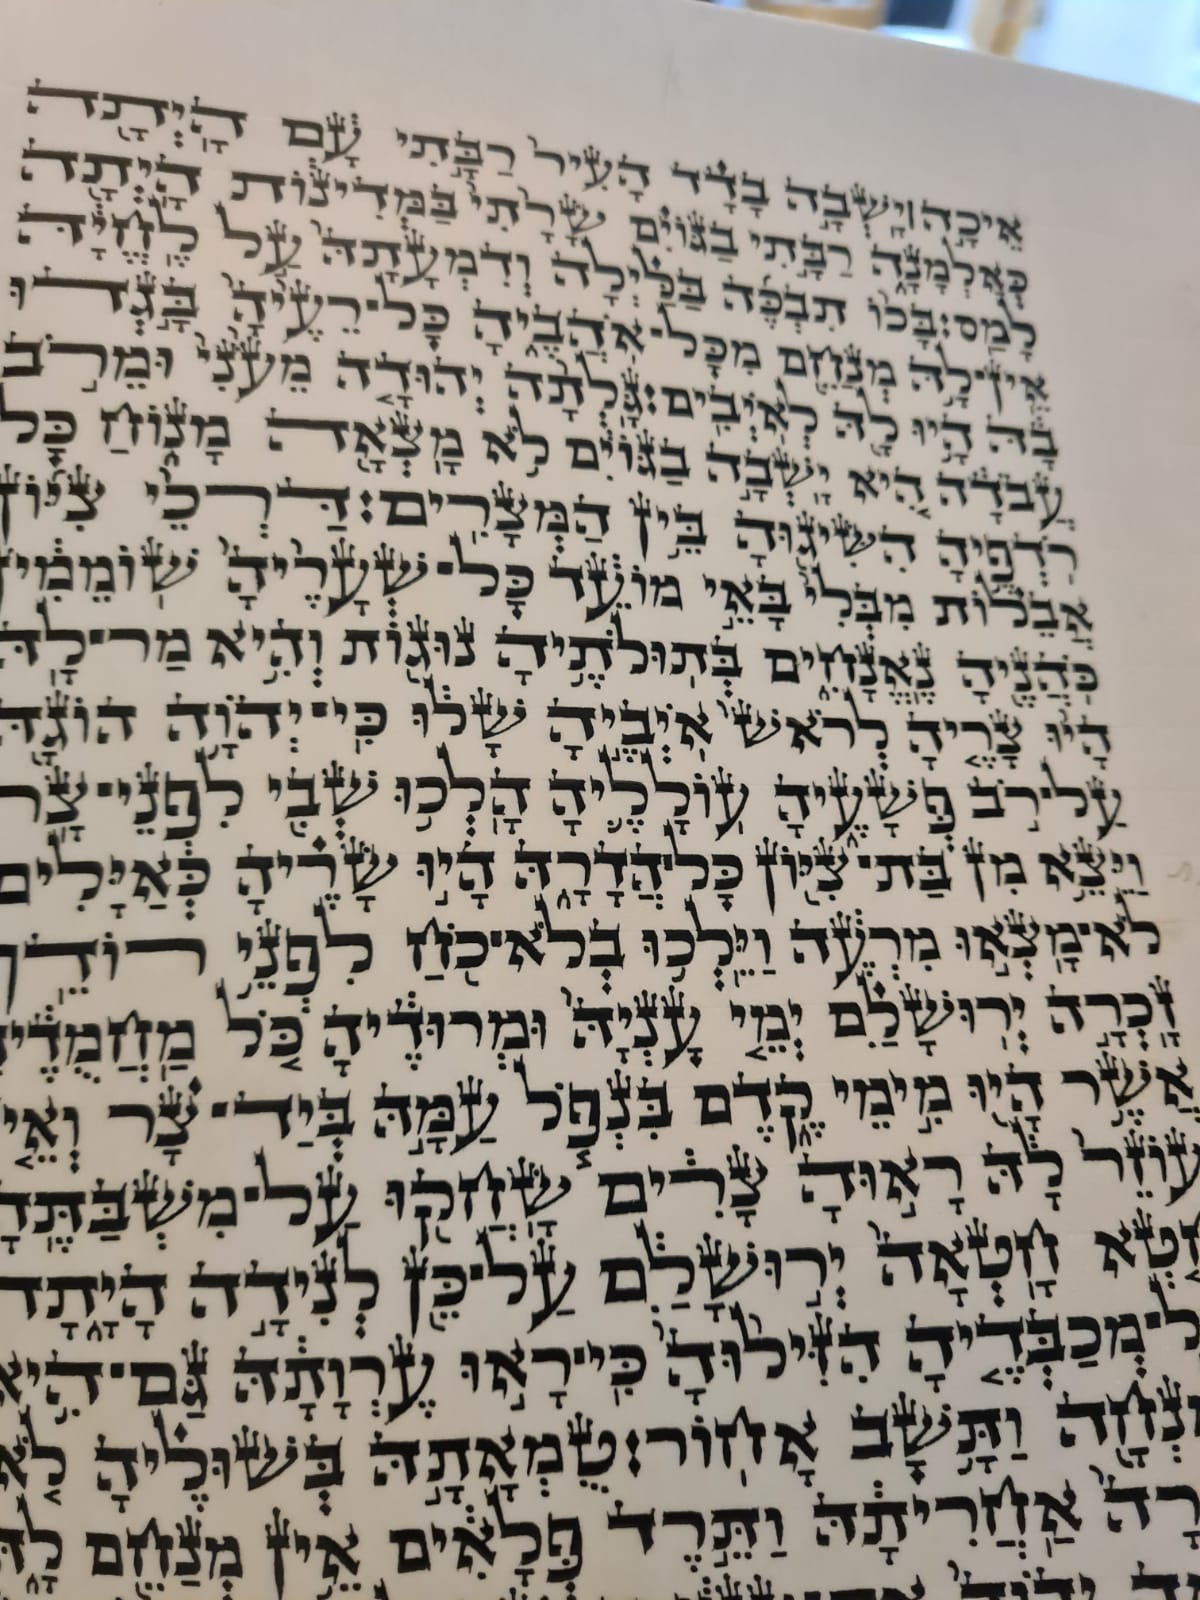 אֵיכָ֣ה׀יָשְׁבָ֣ה בָדָ֗ד הָעִיר֙ רַבָּ֣תִי עָ֔ם הָיְתָ֖ה
כְּאַלְמָנָ֑ה רַבָּ֣תִי בַגּוֹיִ֗ם שָׂרָ֙תִי֙ בַּמְּדִינ֔וֹת הָיְתָ֖ה
לָמַֽס׃בָּכ֨וֹ תִבְכֶּ֜ה בַּלַּ֗יְלָה וְדִמְעָתָהּ֙ עַ֣ל לֶֽחֱיָ֔הּ
אֵֽין־לָ֥הּ מְנַחֵ֖ם מִכָּל־אֹהֲבֶ֑יהָ כָּל־רֵעֶ֙יהָ֙ בָּ֣גְדוּ
בָ֔הּ הָ֥יוּ לָ֖הּ לְאֹיְבִֽים׃גָּֽלְתָ֨ה יְהוּדָ֤ה מֵעֹ֙נִי֙ וּמֵרֹ֣ב
עֲבֹדָ֔ה הִ֚יא יָשְׁבָ֣ה בַגּוֹיִ֔ם לֹ֥א מָצְאָ֖ה מָנ֑וֹחַ כָּל
רֹדְפֶ֥יהָ הִשִּׂיג֖וּהָ בֵּ֥ין הַמְּצָרִֽים׃דַּרְכֵ֨י צִיּ֜וֹן
אֲבֵל֗וֹת מִבְּלִי֙ בָּאֵ֣י מוֹעֵ֔ד כָּל־שְׁעָרֶ֙יהָ֙ שֽׁוֹמֵמִ֔ין
כֹּהֲנֶ֖יהָ נֶאֱנָחִ֑ים בְּתוּלֹתֶ֥יהָ נּוּג֖וֹת וְהִ֥יא מַר־לָֽהּ
הָי֨וּ צָרֶ֤יהָ לְרֹאשׁ֙ אֹיְבֶ֣יהָ שָׁל֔וּ כִּֽי־יְהֹוָ֥ה הוֹגָ֖הּ
עַל־רֹ֣ב פְּשָׁעֶ֑יהָ עוֹלָלֶ֛יהָ הָלְכ֥וּ שְׁבִ֖י לִפְנֵי־צָֽר
וַיֵּצֵ֥א מִן בַּת־צִיּ֖וֹן כָּל־הֲדָרָ֑הּ הָי֣וּ שָׂרֶ֗יהָ כְּאַיָּלִים֙
לֹא־מָצְא֣וּ מִרְעֶ֔ה וַיֵּלְכ֥וּ בְלֹא־כֹ֖חַ לִפְנֵ֥י רוֹדֵֽף
זָֽכְרָ֣ה יְרוּשָׁלִַ֗ם יְמֵ֤י עָנְיָהּ֙ וּמְרוּדֶ֔יהָ כֹּ֚ל מַחֲמֻדֶ֔יהָ
אֲשֶׁ֥ר הָי֖וּ מִ֣ימֵי קֶ֑דֶם בִּנְפֹ֧ל עַמָּ֣הּ בְּיַד־צָ֗ר וְאֵ֤ין
עוֹזֵר֙ לָ֔הּ רָא֣וּהָ צָרִ֔ים שָׂחֲק֖וּ עַל־מִשְׁבַּתֶּֽהָ
חֵ֤טְא חָֽטְאָה֙ יְר֣וּשָׁלִַ֔ם עַל־כֵּ֖ן לְנִידָ֣ה הָיָ֑תָה
מְכַבְּדֶ֤יהָ הִזִּיל֙וּהָ֙ כִּי־רָא֣וּ עֶרְוָתָ֔הּ גַּם־הִ֥יא
נֶאֶנְחָ֖ה וַתָּ֥שָׁב אָחֽוֹר׃טֻמְאָתָ֣הּ בְּשׁוּלֶ֗יהָ לֹ֤א
אַחֲרִיתָ֔הּ וַתֵּ֣רֶד פְּלָאִ֔ים אֵ֥ין מְנַחֵ֖ם לָ֑הּ